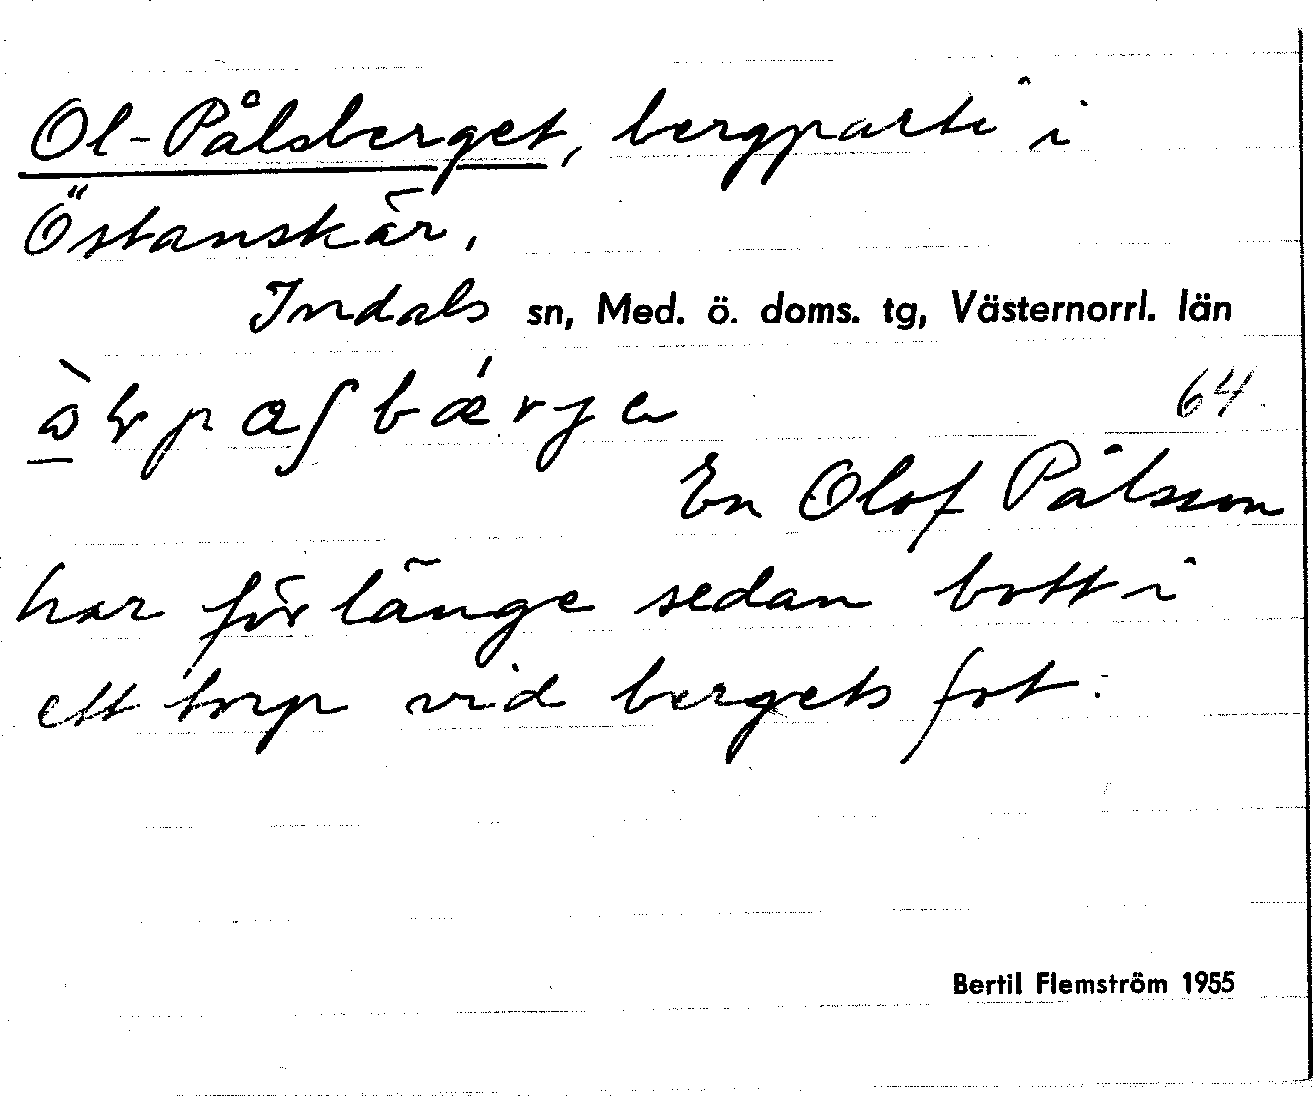 Ol-Pålsberget, bergparti i
Östanskär.
Indals sn, Med. ö. doms. tg, Västernorrl. län
64
En Olof Pålsson
har för länge sedan bott i
ett torp vid bergets fot.
Bertil Flemström 1955